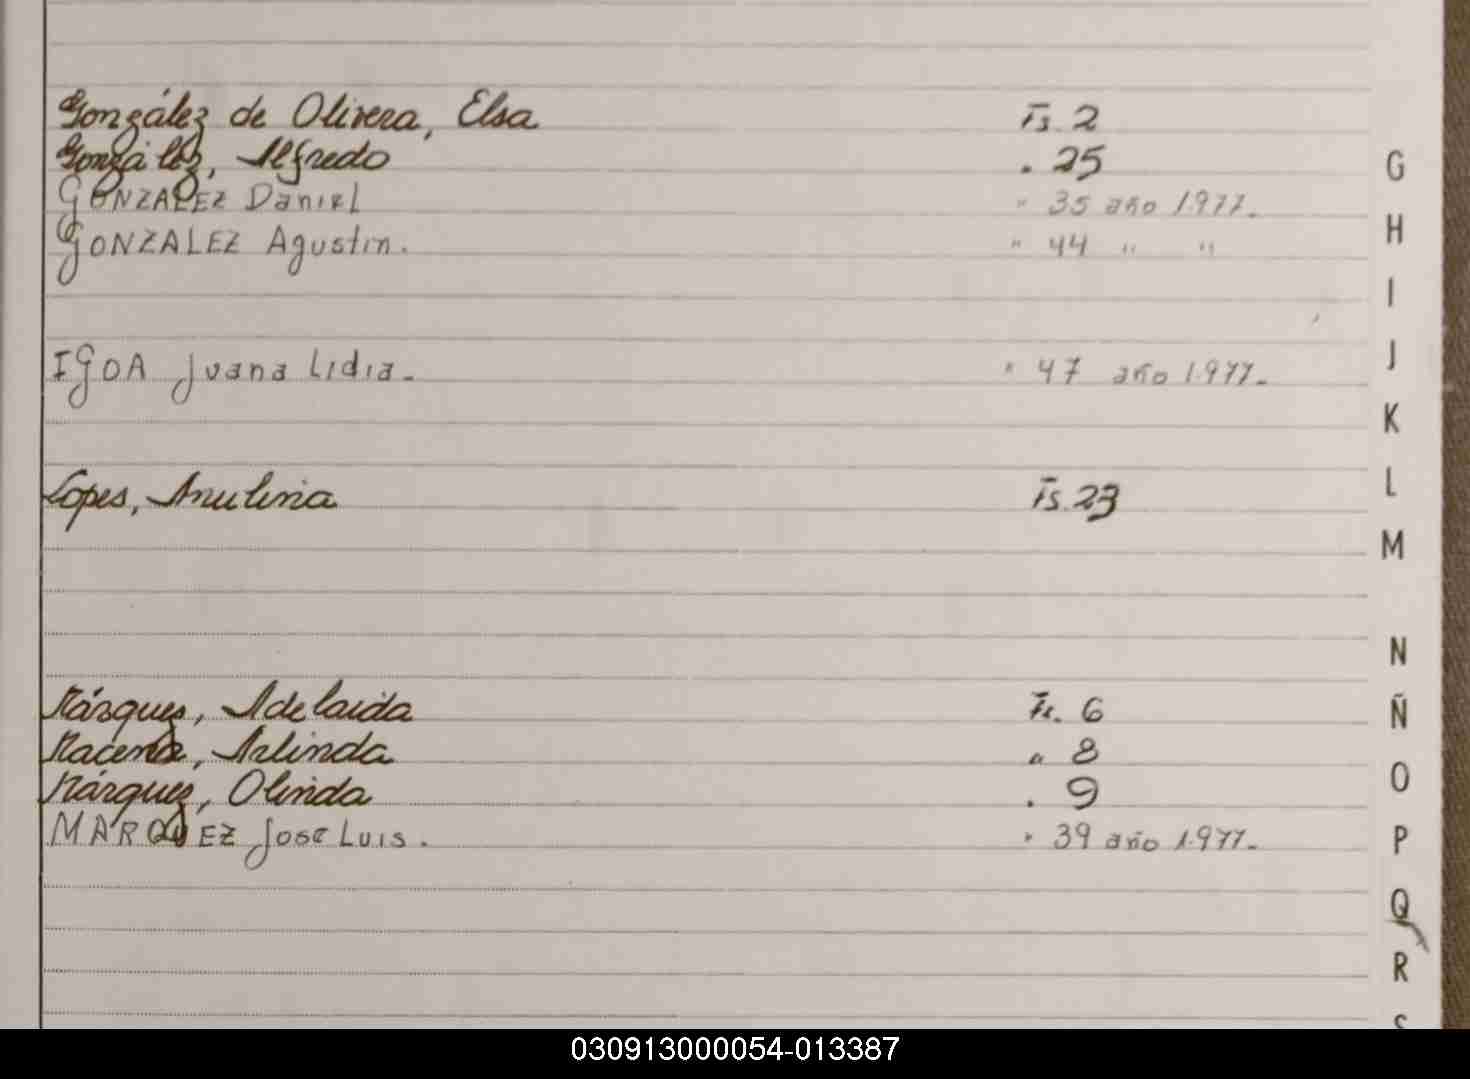 González de Olivera, Elsa Fs. 2
González, Alfredo " 25
GONZALEZ Daniel " 35 año 1.977.-
GONZALEZ Agustin. " 44 " "
IGOA Juana Lidia.- " 47 año 1.977.-
Lopes, Fs. 23
Márquez, Adelaida Fs. 6
Macena, Arlinda " 8
Márquez, Olinda " 9
MARQUEZ Jose Luis. " 39 año 1.977.-
G
H
I
J
K
L
M
N
Ñ
O
P
Q
R
S
030913000054-013387